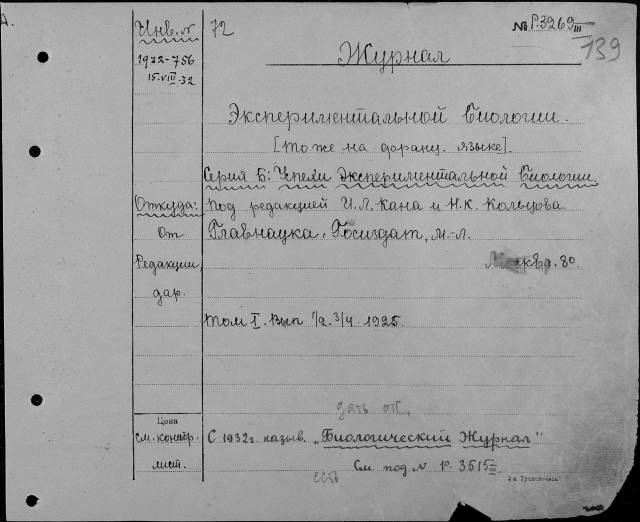 Инв. № 72 № Р.3269 III
139
1932-756 Журнал
15.VIII.32
Экспериментальной Биологии.
[То же на франц. языке].
Серия Б: Успехи Экспериментальной Биологии
Откуда: под редакцией И.Л. Кана и Н.К. Кольцова
От Главнаука, Госиздат, М.-Л.
Редакции, 80.
дар.
Том I. Вып 1/2. 3/4 1925.
дать от.
Цена
см. контр. С 1932 г. назыв. „Биологический Журнал"
лист. См. под № Р. 3515 III
есть